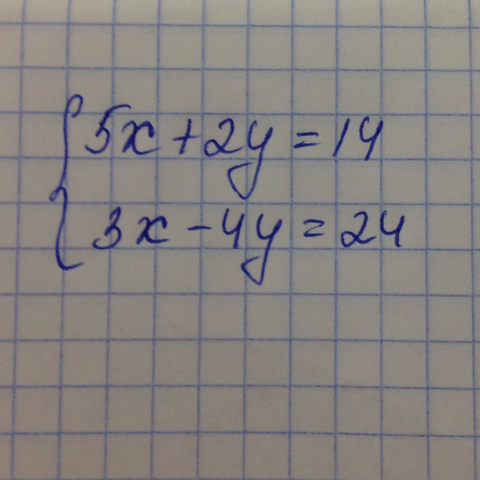 5x+2y=14
3x-4y=24